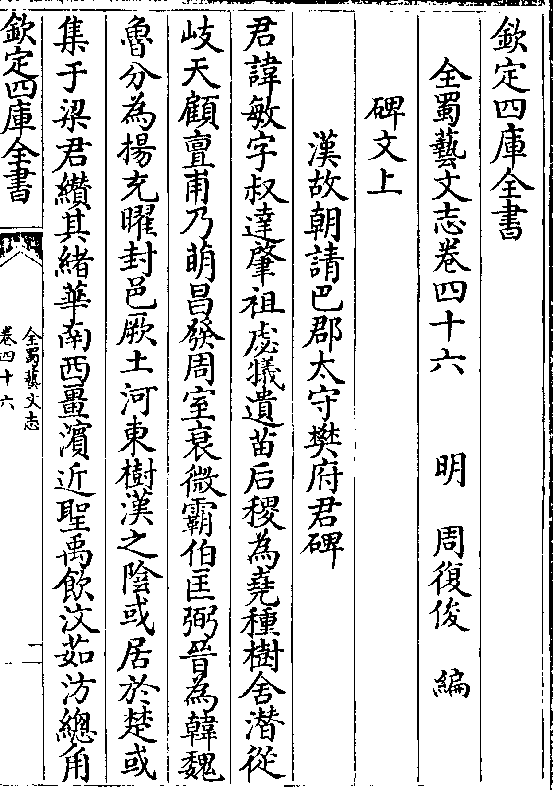 欽定四庫全書
全蜀藝文志卷四十六 明 周復俊 編
碑文上
漢故朝請巴郡太守樊府君碑
君諱敏字叔達肇祖虙犧遺苗后稷為堯種樹舍潛從
岐天顧亶甫乃萌昌發周室衰微霸伯匡弼晉為韓魏
魯分為揚充曜封邑厥土河東樹漢之隂或居於楚或
集于梁君纘其緒華南西畺濵近聖禹飲汶茹汸總角
欽定四庫全書
全蜀藝文志
卷四十六
一